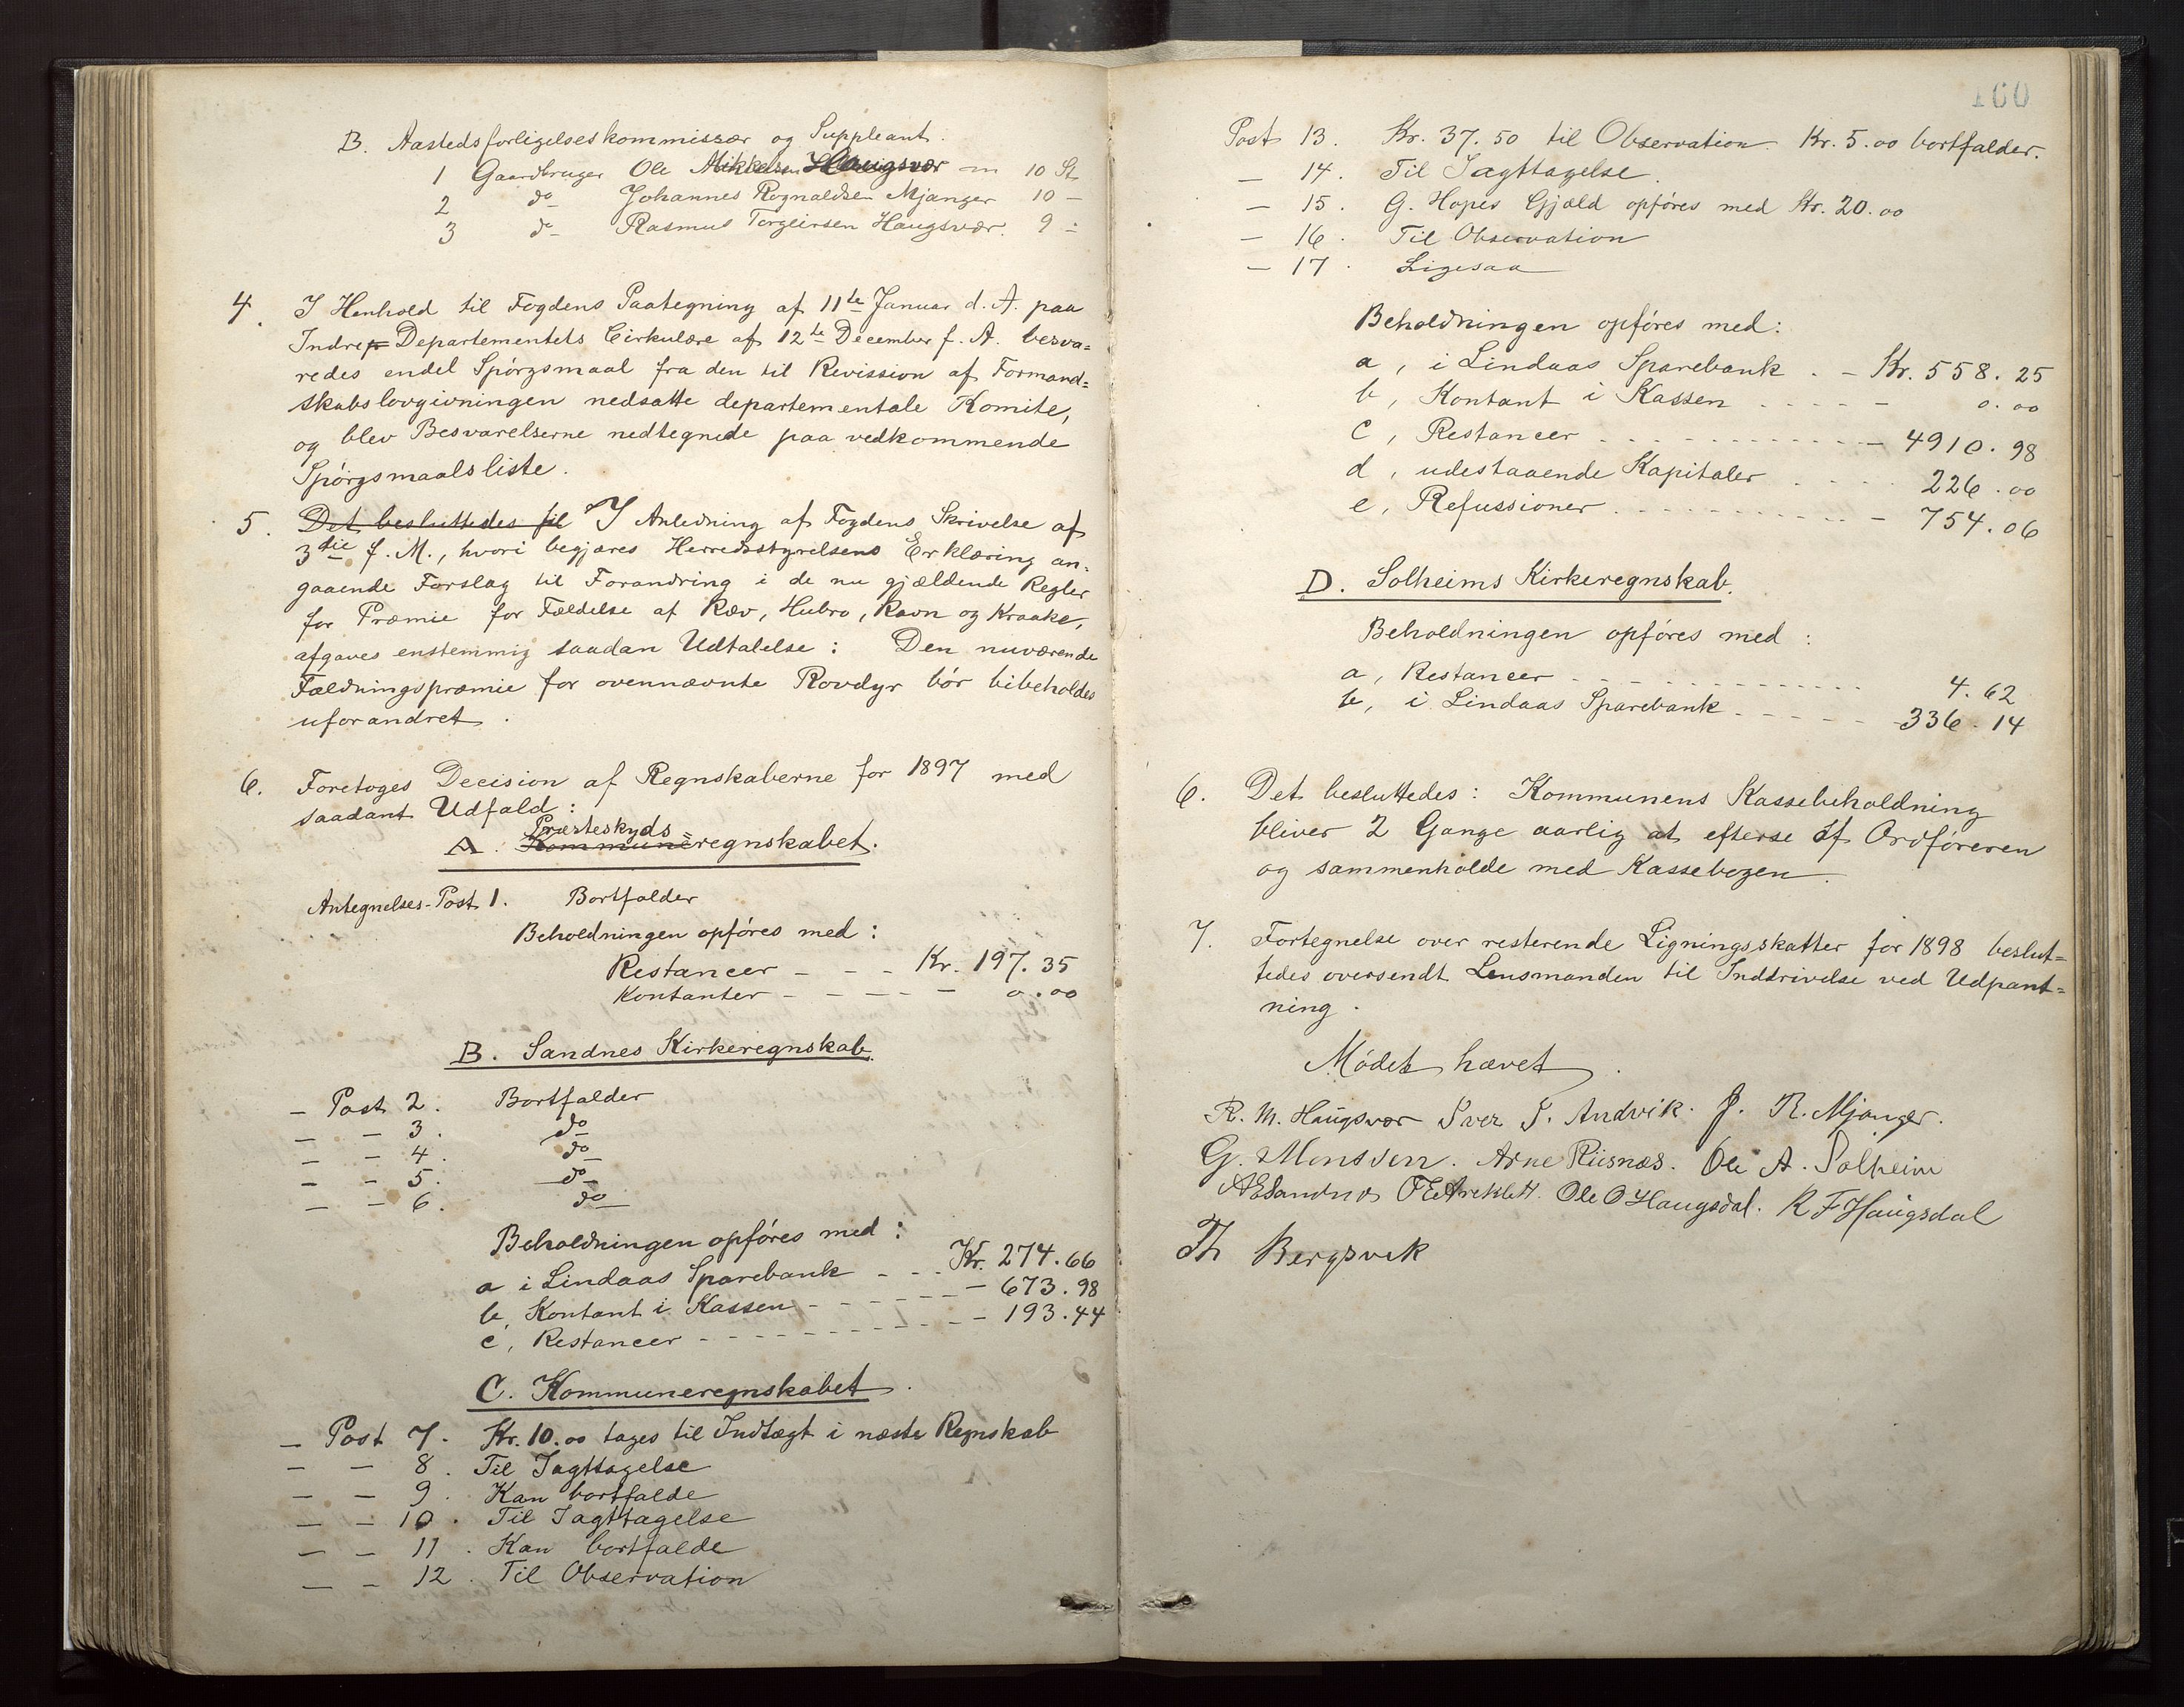 B. Aastedsforligelseskommissær og Suppleant.
1 Gaardbruger Ole Mikkelsen Haugsvær m 10 St
2 do Johannes Rognaldsen Mjanger 10 -
3 do Rasmus Torgeirsen Haugsvær. 9 -
4. I Henhold til Fogdens Paategning af 11te Januar d. A. paa
Indre Departementets Cirkulære af 12te December f. A. besva=
redes endel Spörgsmaal fra den til Revission af Formand=
skabslovgivningen nedsatte departementale Komite,
og blev Besvarelserne nedtegnede paa vedkommende
Spörgsmaalsliste.
5. Det besluttedes til I Anledning af Fogdens Skrivelse af
3die f. M., hvori begjæres Herredsstyrelsens Erklæring an-
gaaende Forslag til Forandring i de nu gjældende Regler
for Præmie for Fældelse af Ræv, Hubro, Ravn og Kraake,
afgaves enstemmig saadan Udtalelse: Den nuværende
Fældningspræmie for ovennævnte Rovdyr bör bibeholdes
uforandret.
6. Foretoges Decision af Regnskaberne for 1897 med
saadant Udfald:
Præsteskyds=
A. Kommuneregnskabet.
Antegnelses-Post 1. Bortfalder
Beholdningen opföres med:
Restancer - - - Kr. 197.35
Kontanter - - - - - 0.00
B. Sandnes Kirkeregnskab.
- Post 2. Bortfalder
- - 3. do
- - 4. do
- - 5. do
- - 6. do
Beholdningen opföres med:
a i Lindaas Sparebank - - - Kr. 274.66
b, Kontant i Kassen - - - - - - 673.98
c, Restancer - - - - - - - - - 193.44
C. Kommuneregnskabet.
- Post 7. Kr. 10.00 tages til Indtægt i næste Regnskab
- - 8. Til Iagttagelse
- - 9. Kan bortfalde
- - 10. Til Iagttagelse
- - 11. Kan bortfalde
- - 12. Til Observation
160
Post 13. Kr. 37.50 til Observation. Kr. 5.00 bortfalder.
- 14. Til Iagttagelse.
- 15. G. Hopes Gjæld opföres med Kr. 20.00
- 16. Til Observation
- 17. Ligesaa
Beholdningen opföres med:
a, i Lindaas Sparebank. - Kr. 558.25
b, Kontant i Kassen - - - - - 0.00
c, Restancer - - - - - - - - - 4910.98
d, udestaaende Kapitaler - - - - 226.00
e, Refussioner - - - - - - - - 754.06
D. Solheims Kirkeregnskab.
Beholdningen opföres med:
a, Restancer - - - - - - - - - 4.62
b, i Lindaas Sparebank - - - - - 336.14
6. Det besluttedes: Kommunens Kassebeholdning
bliver 2 Gange aarlig at efterse af Ordföreren
og sammenholde med Kassebogen.
7. Fortegnelse over resterende Ligningsskatter for 1898 beslut=
tedes oversendt Lensmanden til Inddrivelse ved Udpant=
ning.
Mödet hævet.
R. M. Haugsvær Iver I. Andvik. J. R. Mjanger.
G. Monssen. Arne Risnæs. Ole A. Solheim
A E Sandnes Ole O Haugsdal. R F Haugsdal
Th Bergsvik